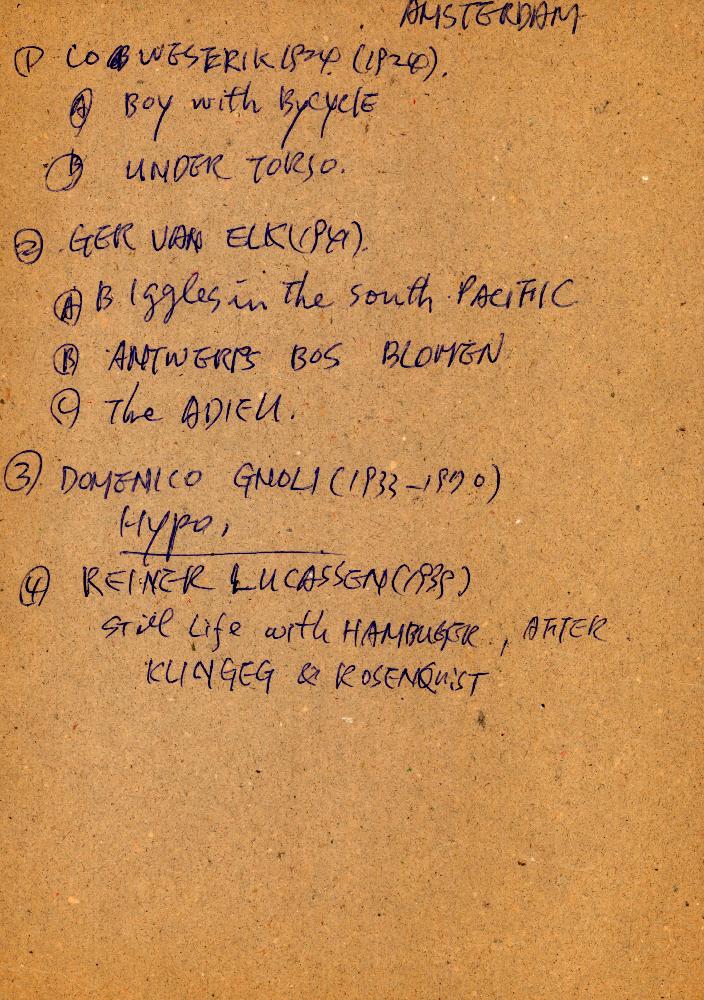 AMSTERDAM
① CO WESTERIK 1924 (1924).
Ⓐ BOY with BYCYCLE
Ⓑ UNDER TORSO.
② GER VAN ELK (1941).
Ⓐ BIggles in the south PACIFIC
Ⓑ ANTWERPS BOS BLOMEN
Ⓒ The ADIEU.
③ DOMENICO GNOLI (1933-1970)
Hypo,
④ REINER LUCASSEN (1939)
Still Life with HAMBUGER, AFTER
KLINGEG & ROSENQUIST